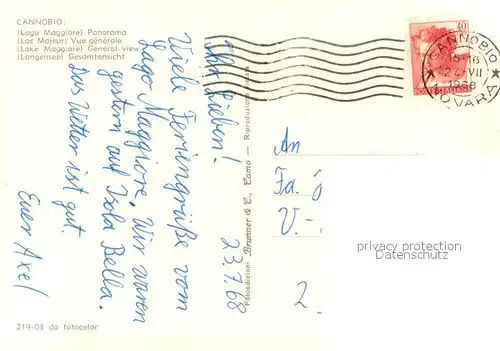 CANNOBIO:
(Lago Maggiore) Panorama
(Lac Majeur) Vue générale
(Lake Maggiore) General view
(Langensee) Gesamtansicht
23.7.68
Ihr Lieben!
Viele Feriengrüße vom
Lago Maggiore, Wir waren
gestern auf Isola Bella.
Das Wetter ist gut.
Euer Axel
219-03 da fotocolor
Fotoedizioni Brunner & C., Como — Riproduzione vietata
40
CANNOBIO
15-16
24 VII
1968
NOVARA
An
Fa.
V.-
2
privacy protection
AnsichtskartenLexikon.de